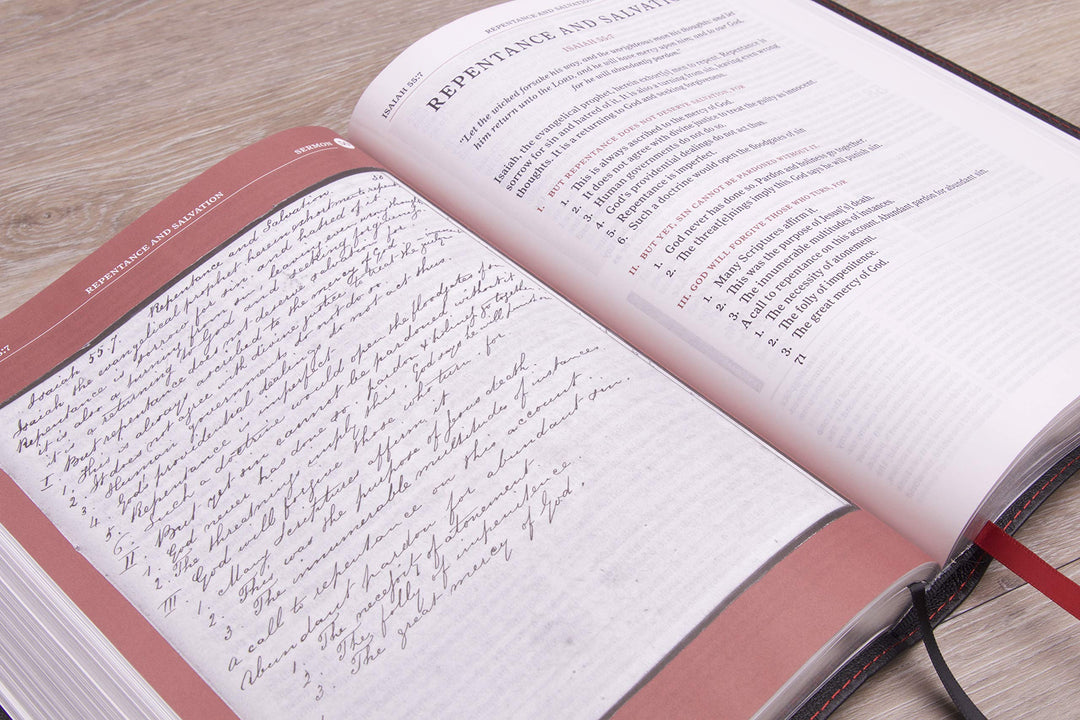 SERMON
REPENTANCE AND SALVATION
55:7
Repentance and Salvation.
Isaiah 55.7
Isaiah the evangelical prophet herein exhorts men to repent
Repentance is sorrow for sin and hatred of it
it is also a turning from sin, leaving even wrong thoughts
it is a returning to God and seeking forgiveness
I But repentance does not deserve salvation for
1. This is always ascribed to the mercy of God
2. It does not agree with divine justice to treat the guilty
3. Human governments do not do so
4. God's providential dealings do not act thus.
5. Repentance is imperfect
6. Such a doctrine would open the floodgates for
II. But yet sin cannot be pardoned without it
1. God never has done so. pardon & holiness go together
2. The threatnings imply this. God says he will punish
III. God will forgive those who turn. for
1. Many Scriptures affirm it
2. This was the purpose of Jesus death.
3. The innumerable multitudes of instances
a call to repentance on this account
Abundant pardon for abundant sin.
1. The necessity of atonement.
2. The folly of impenitence.
3. The great mercy of God.
REPENTANCE AND SALVATION
ISAIAH 55:7
REPENTANCE AND SALVATION
ISAIAH 55:7
"Let the wicked forsake his way, and the unrighteous man his thoughts: and let
him return unto the Lord, and he will have mercy upon him; and to our God,
for he will abundantly pardon."
Isaiah, the evangelical prophet, herein exhort[s] men to repent. Repentance is
sorrow for sin and hatred of it. It is also a turning from sin, leaving even wrong
thoughts. It is a returning to God and seeking forgiveness.
I. BUT REPENTANCE DOES NOT DESERVE SALVATION, FOR
1. This is always ascribed to the mercy of God.
2. It does not agree with divine justice to treat the guilty as innocent.
3. Human governments do not do so.
4. God's providential dealings do not act thus.
5. Repentance is imperfect.
6. Such a doctrine would open the floodgates of sin
II. BUT YET, SIN CANNOT BE PARDONED WITHOUT IT.
1. God never has done so. Pardon and holiness go together.
2. The threat[e]nings imply this. God says he will punish sin.
III. GOD WILL FORGIVE THOSE WHO TURN, FOR
1. Many Scriptures affirm it.
2. This was the purpose of Jesus['s] death.
3. The innumerable multitudes of instances.
A call to repentance on this account. Abundant pardon for abundant sin.
1. The necessity of atonement.
2. The folly of impenitence.
3. The great mercy of God.
71